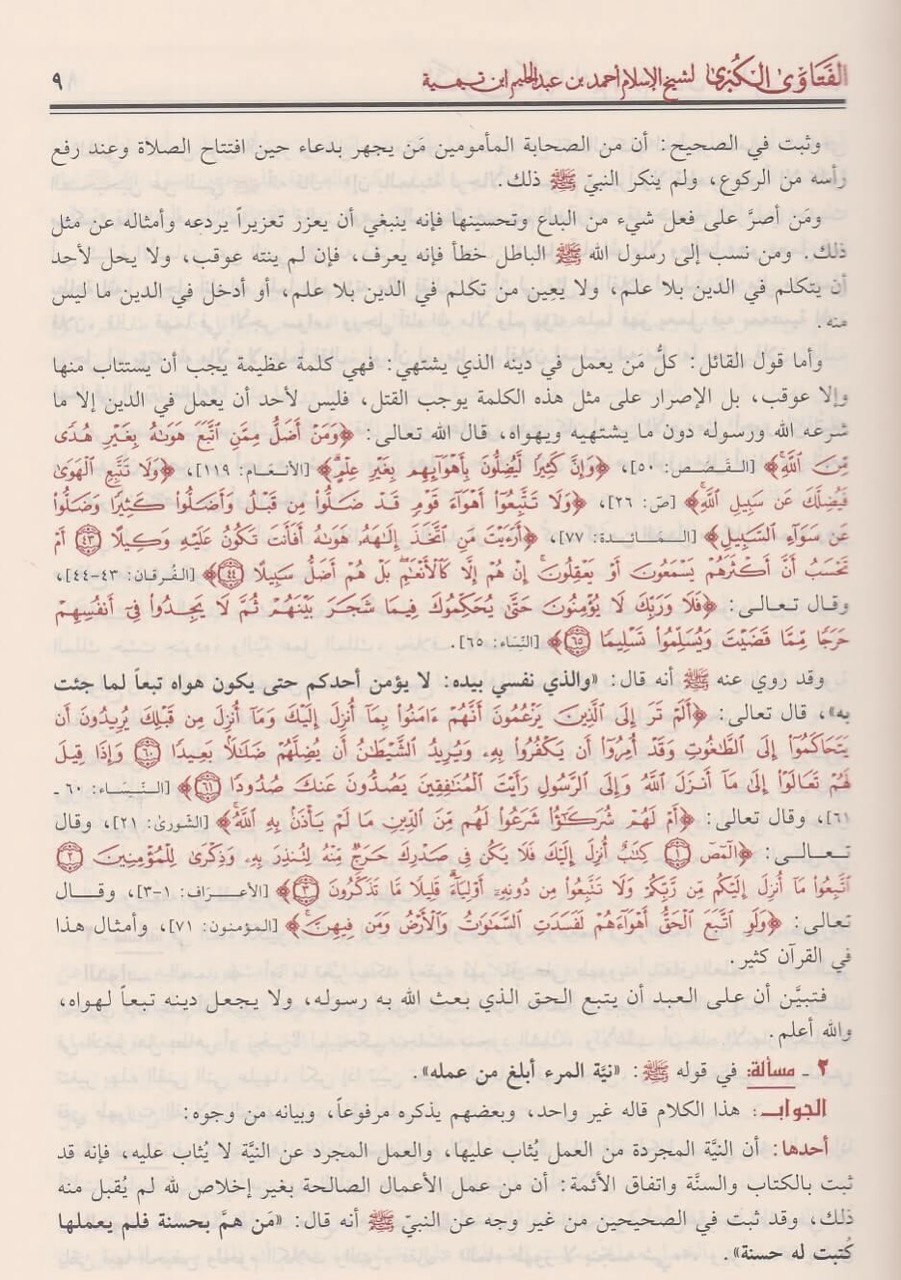 الفتاوى الكبرى لشيخ الإسلام أحمد بن عبد الحليم ابن تيمية ٩
وثبت في الصحيح: أن من الصحابة المأمومين مَن يجهر بدعاء حين افتتاح الصلاة وعند رفع
رأسه من الركوع، ولم ينكر النبيّ ﷺ ذلك.
ومَن أصرَّ على فعل شيء من البدع وتحسينها فإنه ينبغي أن يعزر تعزيراً يردعه وأمثاله عن مثل
ذلك. ومن نسب إلى رسول الله ﷺ الباطل خطأ فإنه يعرف، فإن لم ينته عوقب، ولا يحل لأحد
أن يتكلم في الدين بلا علم، ولا يعين من تكلم في الدين بلا علم، أو أدخل في الدين ما ليس
منه.
وأما قول القائل: كلُّ مَن يعمل في دينه الذي يشتهي: فهي كلمة عظيمة يجب أن يستتاب منها
وإلا عوقب، بل الإصرار على مثل هذه الكلمة يوجب القتل، فليس لأحد أن يعمل في الدين إلا ما
شرعه الله ورسوله دون ما يشتهيه ويهواه، قال الله تعالى: ﴿وَمَنْ أَضَلُّ مِمَّنِ ٱتَّبَعَ هَوَىٰهُ بِغَيْرِ هُدًى
مِّنَ ٱللَّهِ﴾ [القَصَص: ٥٠]، ﴿وَإِنَّ كَثِيرًا لَّيُضِلُّونَ بِأَهْوَآئِهِم بِغَيْرِ عِلْمٍ﴾ [الأنعَام: ١١٩]، ﴿وَلَا تَتَّبِعِ ٱلْهَوَىٰ
فَيُضِلَّكَ عَن سَبِيلِ ٱللَّهِ﴾ [صَ: ٢٦]، ﴿وَلَا تَتَّبِعُوٓا۟ أَهْوَآءَ قَوْمٍ قَدْ ضَلُّوا۟ مِن قَبْلُ وَأَضَلُّوا۟ كَثِيرًا وَضَلُّوا۟
عَن سَوَآءِ ٱلسَّبِيلِ﴾ [المَائدة: ٧٧]، ﴿أَرَءَيْتَ مَنِ ٱتَّخَذَ إِلَٰهَهُۥ هَوَىٰهُ أَفَأَنتَ تَكُونُ عَلَيْهِ وَكِيلًا ٤٣ أَمْ
تَحْسَبُ أَنَّ أَكْثَرَهُمْ يَسْمَعُونَ أَوْ يَعْقِلُونَ إِنْ هُمْ إِلَّا كَٱلْأَنْعَٰمِ بَلْ هُمْ أَضَلُّ سَبِيلًا ٤٤﴾ [الفُرقان: ٤٣-٤٤]،
وقال تعالى: ﴿فَلَا وَرَبِّكَ لَا يُؤْمِنُونَ حَتَّىٰ يُحَكِّمُوكَ فِيمَا شَجَرَ بَيْنَهُمْ ثُمَّ لَا يَجِدُوا۟ فِىٓ أَنفُسِهِمْ
حَرَجًا مِّمَّا قَضَيْتَ وَيُسَلِّمُوا۟ تَسْلِيمًا ٦٥﴾ [النِّسَاء: ٦٥].
وقد روي عنه ﷺ أنه قال: «والذي نفسي بيده: لا يؤمن أحدكم حتى يكون هواه تبعاً لما جئت
به»، قال تعالى: ﴿أَلَمْ تَرَ إِلَى ٱلَّذِينَ يَزْعُمُونَ أَنَّهُمْ ءَامَنُوا۟ بِمَآ أُنزِلَ إِلَيْكَ وَمَآ أُنزِلَ مِن قَبْلِكَ يُرِيدُونَ أَن
يَتَحَاكَمُوٓا۟ إِلَى ٱلطَّٰغُوتِ وَقَدْ أُمِرُوٓا۟ أَن يَكْفُرُوا۟ بِهِۦ وَيُرِيدُ ٱلشَّيْطَٰنُ أَن يُضِلَّهُمْ ضَلَٰلًۢا بَعِيدًا ٦٠ وَإِذَا قِيلَ
لَهُمْ تَعَالَوْا۟ إِلَىٰ مَآ أَنزَلَ ٱللَّهُ وَإِلَى ٱلرَّسُولِ رَأَيْتَ ٱلْمُنَٰفِقِينَ يَصُدُّونَ عَنكَ صُدُودًا ٦١﴾ [النِّسَاء: ٦٠ -
٦١]، وقال تعالى: ﴿أَمْ لَهُمْ شُرَكَٰٓؤُا۟ شَرَعُوا۟ لَهُم مِّنَ ٱلدِّينِ مَا لَمْ يَأْذَنۢ بِهِ ٱللَّهُ﴾ [الشّورىٰ: ٢١]، وقال
تعالى: ﴿الٓمٓصٓ ١ كِتَٰبٌ أُنزِلَ إِلَيْكَ فَلَا يَكُن فِى صَدْرِكَ حَرَجٌ مِّنْهُ لِتُنذِرَ بِهِۦ وَذِكْرَىٰ لِلْمُؤْمِنِينَ ٢
ٱتَّبِعُوا۟ مَآ أُنزِلَ إِلَيْكُم مِّن رَّبِّكُمْ وَلَا تَتَّبِعُوا۟ مِن دُونِهِۦٓ أَوْلِيَآءَ قَلِيلًا مَّا تَذَكَّرُونَ ٣﴾ [الأعرَاف: ١-٣]، وقال
تعالى: ﴿وَلَوِ ٱتَّبَعَ ٱلْحَقُّ أَهْوَآءَهُمْ لَفَسَدَتِ ٱلسَّمَٰوَٰتُ وَٱلْأَرْضُ وَمَن فِيهِنَّ﴾ [المؤمنون: ٧١]، وأمثال هذا
في القرآن كثير.
فتبيَّن أن على العبد أن يتبع الحق الذي بعث الله به رسوله، ولا يجعل دينه تبعاً لهواه،
والله أعلم.
٢ - مسألة: في قوله ﷺ: «نيَّة المرء أبلغ من عمله».
الجواب: هذا الكلام قاله غير واحد، وبعضهم يذكره مرفوعاً، وبيانه من وجوه:
أحدها: أن النيَّة المجردة من العمل يُثاب عليها، والعمل المجرد عن النيَّة لا يُثاب عليه، فإنه قد
ثبت بالكتاب والسنَّة واتفاق الأئمة: أن من عمل الأعمال الصالحة بغير إخلاص لله لم يُقبل منه
ذلك، وقد ثبت في الصحيحين من غير وجه عن النبيّ ﷺ أنه قال: «مَن همَّ بحسنة فلم يعملها
كُتبت له حسنة».